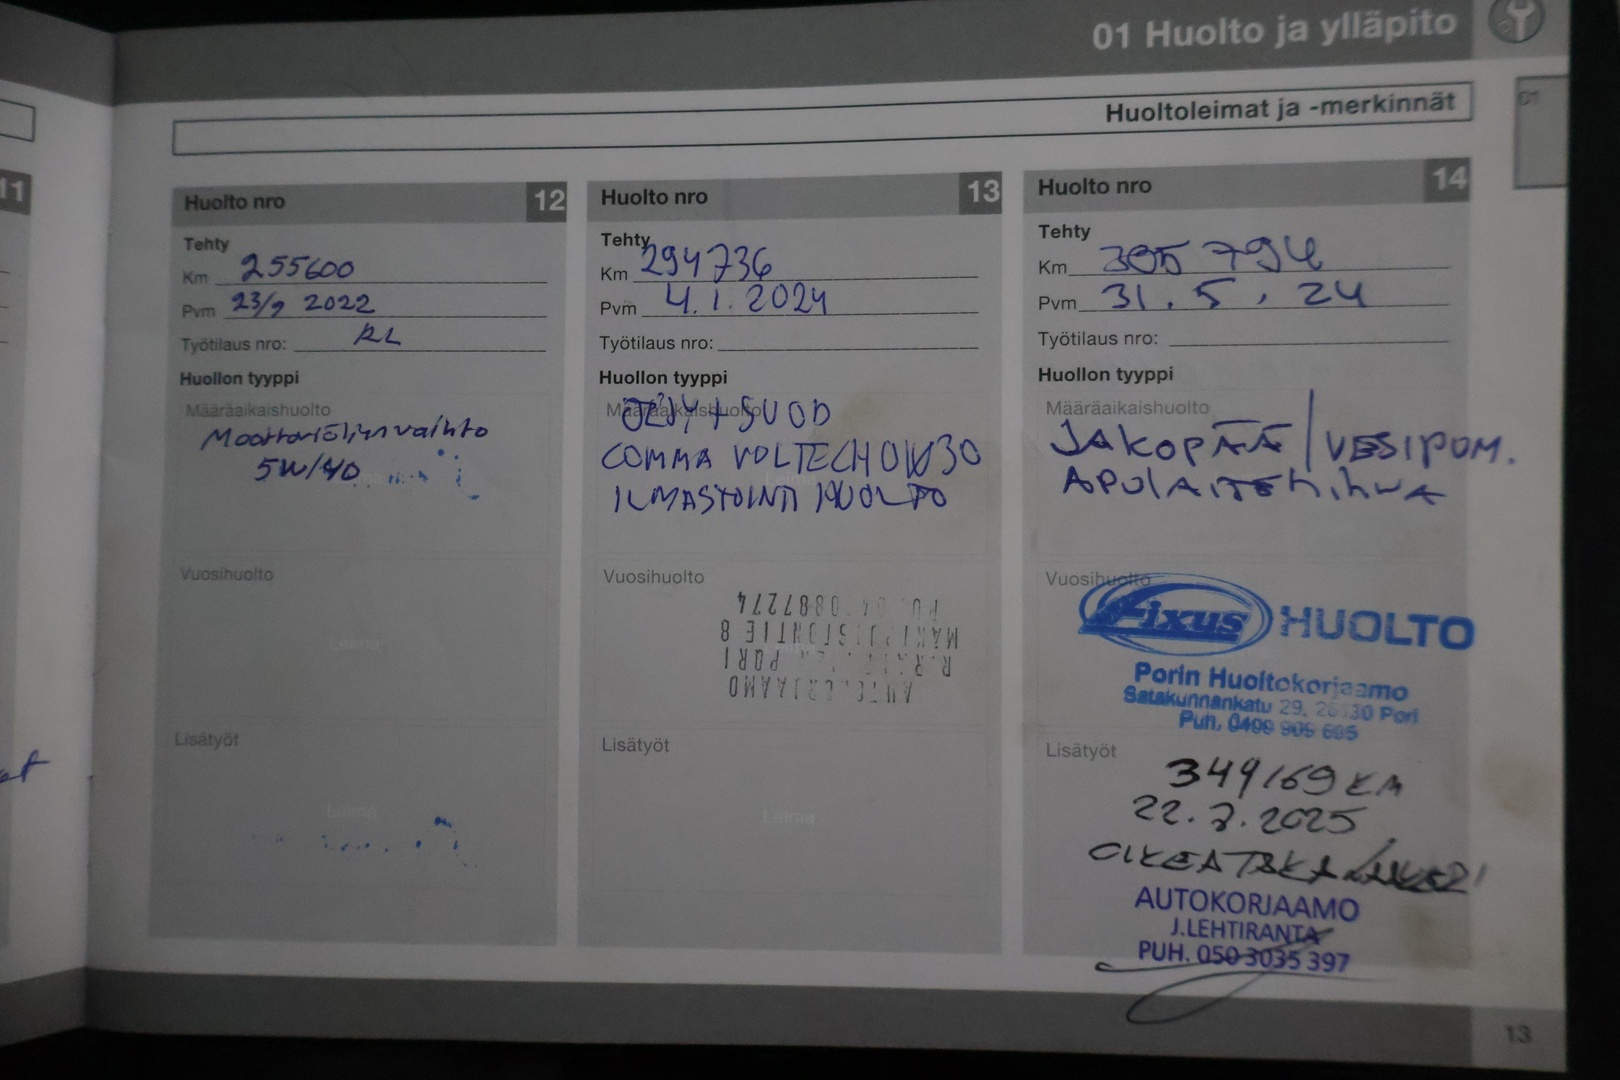 01 Huolto ja ylläpito
01
Huoltoleimat ja -merkinnät
11
Huolto nro 12
Tehty
Km 255600
Pvm 23/9 2022
Työtilaus nro: RL
Huollon tyyppi
Määräaikaishuolto
Moottoriöljynvaihto
5W/40
Leima
Vuosihuolto
Leima
Lisätyöt
Leima
Huolto nro 13
Tehty
Km 294736
Pvm 4.1.2024
Työtilaus nro:
Huollon tyyppi
Määräaikaishuolto
ÖLJY + SUOD
COMMA VOLTECH 0W30
ILMASTOINTI HUOLTO
Vuosihuolto
AUTOKORJAAMO
PORI
8
Lisätyöt
Leima
Huolto nro 14
Tehty
Km 305 794
Pvm 31.5.24
Työtilaus nro:
Huollon tyyppi
Määräaikaishuolto
JAKOPÄÄ / VESIPUM.
APULAITEHIHNA
Vuosihuolto
Fixus HUOLTO
Porin Huoltokorjaamo
Satakunnankatu 29, Pori
Puh.
Lisätyöt
349169 KM
22.7.2025
OIKEA TAKA
AUTOKORJAAMO
J.LEHTIRANTA
PUH. 050 3035 397
13